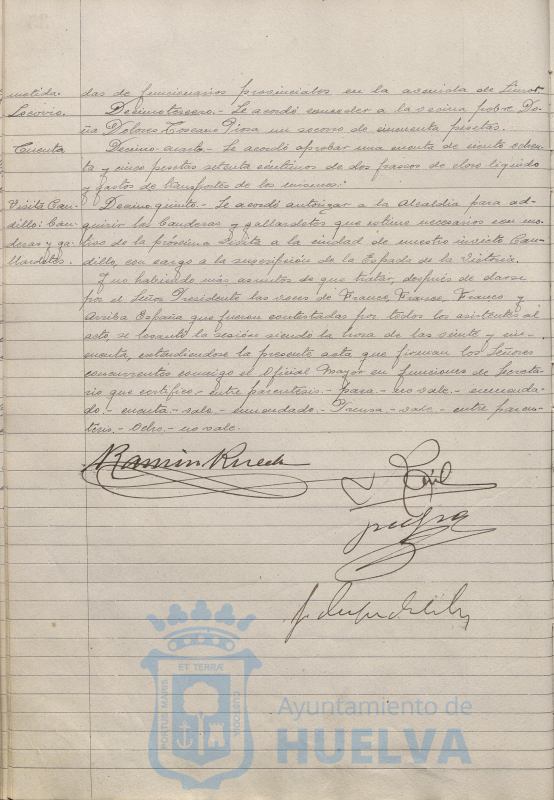 metida.
das de funcionarios provinciales en la avenida de
Socorro.
Decimotercero.- Se acordó conceder a la vecina pobre Do-
ña Dolores Toscano un socorro de cincuenta pesetas.
Cuenta
Decimo-cuarto.- Se acordó aprobar una cuenta de ciento ochen-
ta y cinco pesetas setenta céntimos de dos frascos de cloro líquido
y gastos de transportes de los mismos.
Visita Cau-
Decimoquinto.- Se acordó autorizar a la Alcaldía para ad-
dillo: Ban
quirir las banderas y gallardetes que estime necesarios con mo-
deras y ga
tivo de la próxima visita a la ciudad de nuestro invicto Cau-
llardetes.
dillo, con cargo a la suscripción de la Espada de la Victoria.
Y no habiendo más asuntos de que tratar, después de darse
por el Señor Presidente las voces de Franco, Franco, Franco y
Arriba España que fueron contestadas por todos los asistentes al
acto, se levantó la sesión siendo la hora de las veinte y cin-
cuenta, extendiéndose la presente acta que firman los Señores
concurrentes conmigo el Oficial Mayor en funciones de Secreta-
rio que certifico.- entre paréntesis.- para.- no vale.- enmenda-
do.- cuenta.- vale.- enmendado.- Prensa.- vale.- entre parén-
tesis.- Ocho.- no vale.
Ramón
ET TERRÆ
PORTUS MARIS
CUSTODIA
Ayuntamiento de
HUELVA